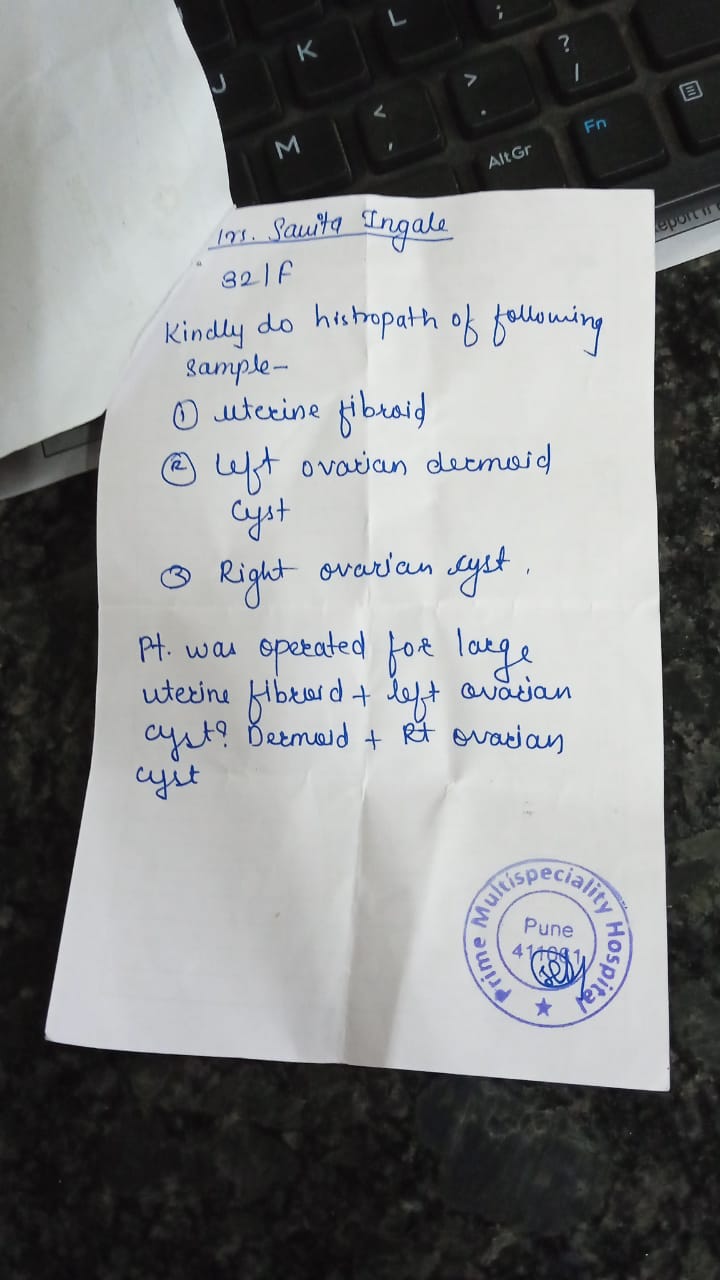 Mrs. Savita Ingale
32/F
Kindly do histropath of following
sample-
① uterine fibroid
② Left ovarian dermoid
cyst
③ Right ovarian cyst.
Pt. was operated for large
uterine fibroid + left ovarian
cyst? Dermoid + Rt ovarian
cyst
Prime Multispeciality Hospital
Pune
J
K
L
;
M
<
,
>
.
?
/
AltGr
Fn